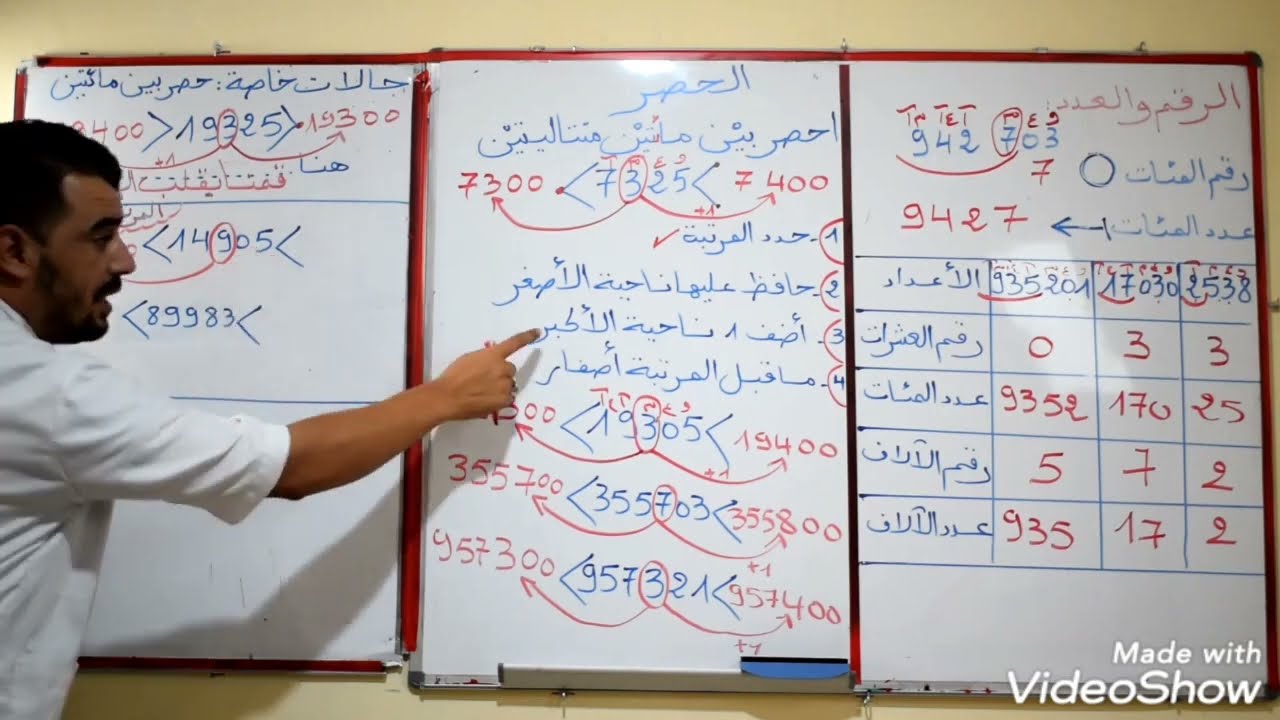 الرقم والعدد:
942 703
رقم المئات 7
عدد المئات 9427
الأعداد 935201 17030 2538
رقم العشرات 0 3 3
عدد المئات 9352 170 25
رقم الآلاف 5 7 2
عدد الآلاف 935 17 2
الحصر
احصر بين مائتين متتاليتين
7300 < 7325 < 7400
+1
1- حدد المرتبة ✓
2- حافظ عليها ناحية الأصغر
3- أضف 1 ناحية الأكبر
4- ما قبل المرتبة أصفار
300 < 19305 < 19400
+1
355700 < 355703 < 355800
+1
957300 < 957321 < 957400
+1
حالات خاصة: حصر بين مائتين
400 > 19325 > 19300
+1
هنا قمنا بقلب
< 14905 <
< 89983 <
Made with
VideoShow